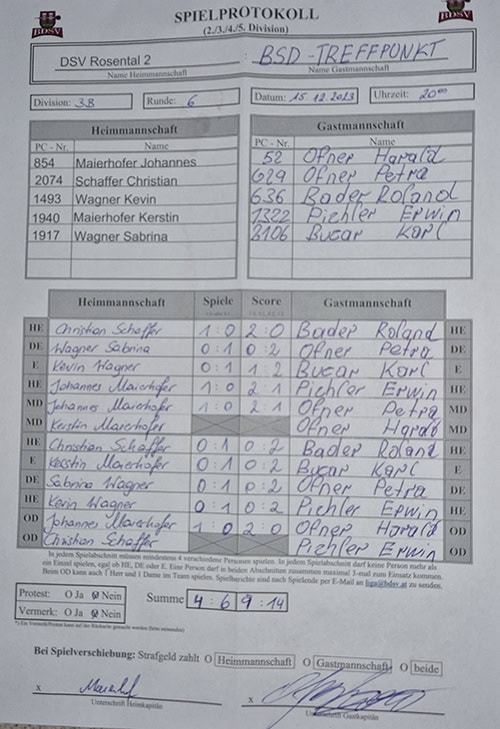 BDSV
SPIELPROTOKOLL
BDSV
(2./3./4./5. Division)
DSV Rosental 2 : BSD-TREFFPUNKT
Name Heimmannschaft Name Gastmannschaft
Division: 3B Runde: 6 Datum: 15 12.2023 Uhrzeit: 20⁰⁰
Heimmannschaft Gastmannschaft
PC - Nr. Name PC - Nr. Name
854 Maierhofer Johannes 52 Ofner Harald
2074 Schaffer Christian 629 Ofner Petra
1493 Wagner Kevin 636 Bader Roland
1940 Maierhofer Kerstin 1322 Pichler Erwin
1917 Wagner Sabrina 2106 Bucar Karl
Heimmannschaft Spiele Score Gastmannschaft
HE Christian Schaffer 1:0 2:0 Bader Roland HE
DE Wagner Sabrina 0:1 0:2 Ofner Petra DE
E Kevin Wagner 0:1 1:2 Bucar Karl E
HE Johannes Maierhofer 1:0 2:1 Pichler Erwin HE
MD Johannes Maierhofer 1:0 2:1 Ofner Petra MD
MD Kerstin Maierhofer Ofner Harald MD
HE Christian Schaffer 0:1 0:2 Bader Roland HE
E Kerstin Maierhofer 0:1 0:2 Bucar Karl E
DE Sabrina Wagner 0:1 0:2 Ofner Petra DE
HE Kevin Wagner 0:1 0:2 Pichler Erwin HE
OD Johannes Maierhofer 1:0 2:0 Ofner Harald OD
OD Christian Schaffer Pichler Erwin OD
In jedem Spielabschnitt müssen mindestens 4 verschiedene Personen spielen. In jedem Spielabschnitt darf keine Person mehr als
ein Einzel spielen, egal ob HE, DE oder E. Eine Person darf in beiden Abschnitten zusammen maximal 3-mal zum Einsatz kommen.
Beim OD kann auch 1 Herr und 1 Dame im Team spielen. Spielberichte sind nach Spielende per E-Mail an liga@bdsv.at zu senden.
Protest: O Ja O Nein Summe 4:6 9:14
Vermerk: O Ja O Nein
Bei Spielverschiebung: Strafgeld zahlt O Heimmannschaft O Gastmannschaft O beide
x x
Unterschrift Heimkapitän Unterschrift Gastkapitän